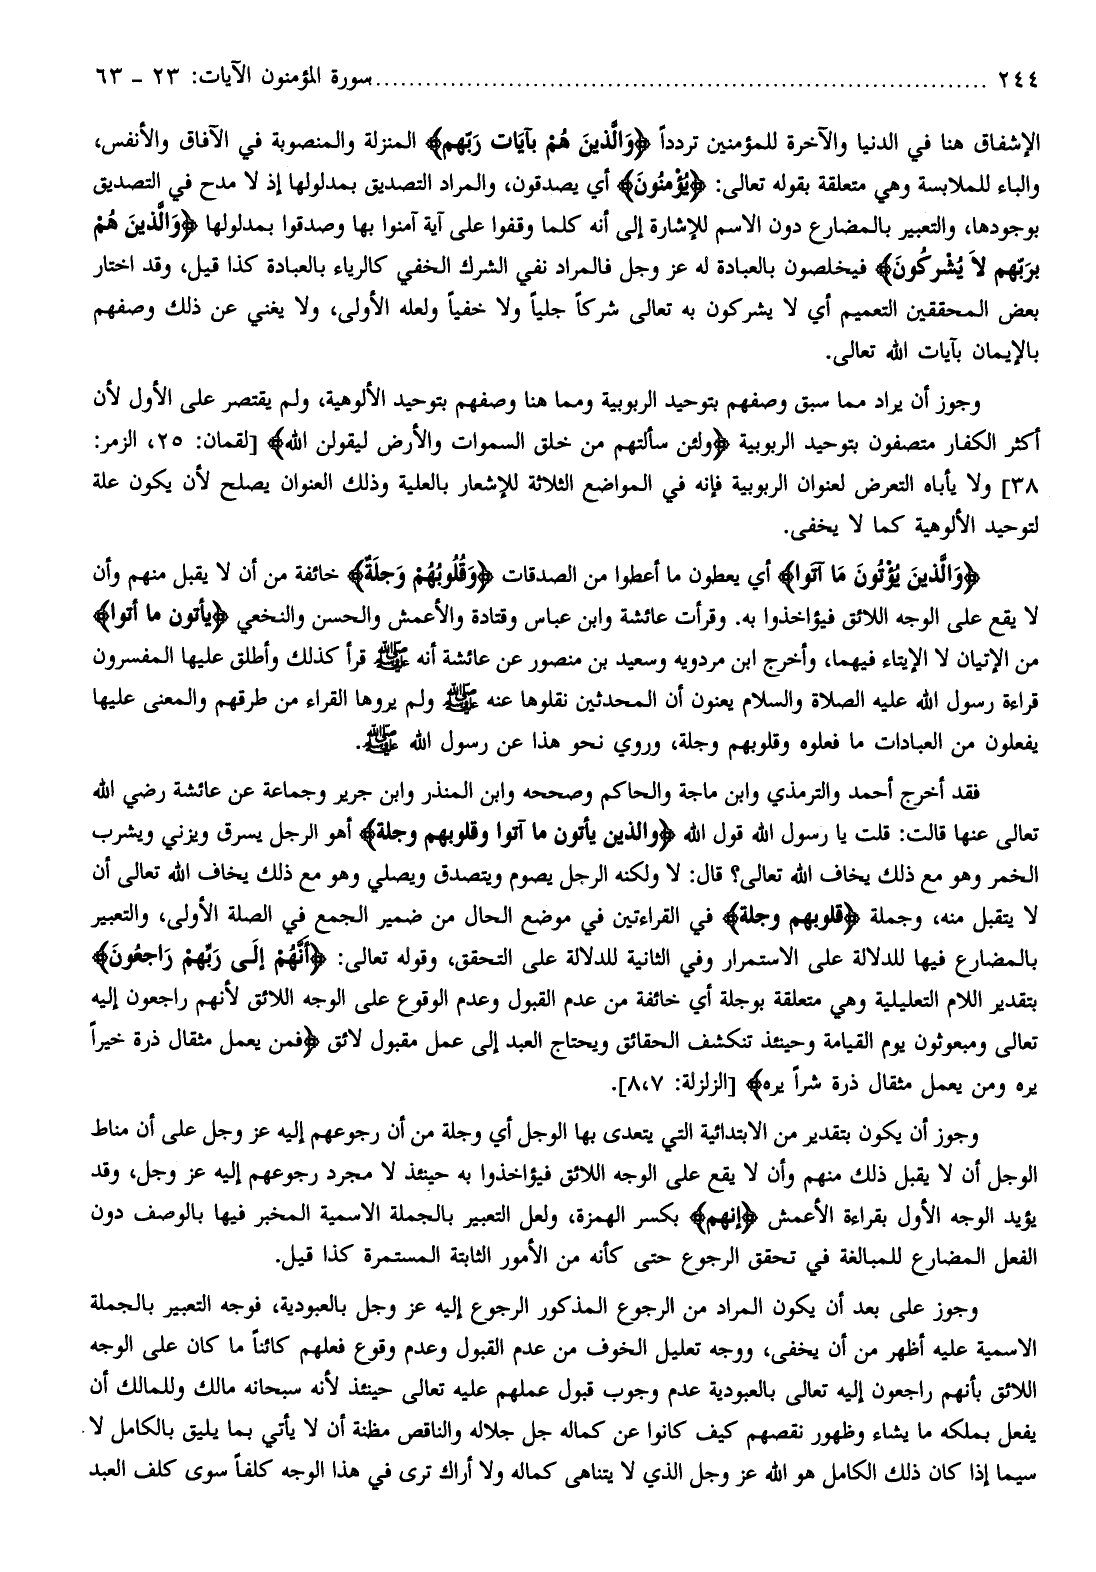 ٢٤٤ ........................................................................ سورة المؤمنون الآيات: ٢٣ ـ ٦٣
الإشفاق هنا في الدنيا والآخرة للمؤمنين تردداً ﴿وَالَّذينَ هُمْ بآيَات رَبّهم﴾ المنزلة والمنصوبة في الآفاق والأنفس،
والباء للملابسة وهي متعلقة بقوله تعالى: ﴿يُؤْمنُونَ﴾ أي يصدقون، والمراد التصديق بمدلولها إذ لا مدح في التصديق
بوجودها، والتعبير بالمضارع دون الاسم للإشارة إلى أنه كلما وقفوا على آية آمنوا بها وصدقوا بمدلولها ﴿وَالَّذينَ هُمْ
برَبّهم لاَ يُشْركُونَ﴾ فيخلصون بالعبادة له عز وجل فالمراد نفي الشرك الخفي كالرياء بالعبادة كذا قيل، وقد اختار
بعض المحققين التعميم أي لا يشركون به تعالى شركاً جلياً ولا خفياً ولعله الأولى، ولا يغني عن ذلك وصفهم
بالإيمان بآيات الله تعالى.
وجوز أن يراد مما سبق وصفهم بتوحيد الربوبية ومما هنا وصفهم بتوحيد الألوهية، ولم يقتصر على الأول لأن
أكثر الكفار متصفون بتوحيد الربوبية ﴿ولئن سألتهم من خلق السموات والأرض ليقولن الله﴾ [لقمان: ٢٥، الزمر:
٣٨] ولا يأباه التعرض لعنوان الربوبية فإنه في المواضع الثلاثة للإشعار بالعلية وذلك العنوان يصلح لأن يكون علة
لتوحيد الألوهية كما لا يخفى.
﴿وَالَّذينَ يُؤْتُونَ مَا آتَوا﴾ أي يعطون ما أعطوا من الصدقات ﴿وَقُلُوبُهُمْ وَجلَةٌ﴾ خائفة من أن لا يقبل منهم وأن
لا يقع على الوجه اللائق فيؤاخذوا به. وقرأت عائشة وابن عباس وقتادة والأعمش والحسن والنخعي ﴿يأتون ما أتوا﴾
من الإتيان لا الإيتاء فيهما، وأخرج ابن مردويه وسعيد بن منصور عن عائشة أنه ﷺ قرأ كذلك وأطلق عليها المفسرون
قراءة رسول الله عليه الصلاة والسلام يعنون أن المحدثين نقلوها عنه ﷺ ولم يروها القراء من طرقهم والمعنى عليها
يفعلون من العبادات ما فعلوه وقلوبهم وجلة، وروي نحو هذا عن رسول الله ﷺ.
فقد أخرج أحمد والترمذي وابن ماجة والحاكم وصححه وابن المنذر وابن جرير وجماعة عن عائشة رضي الله
تعالى عنها قالت: قلت يا رسول الله قول الله ﴿والذين يأتون ما آتوا وقلوبهم وجلة﴾ أهو الرجل يسرق ويزني ويشرب
الخمر وهو مع ذلك يخاف الله تعالى؟ قال: لا ولكنه الرجل يصوم ويتصدق ويصلي وهو مع ذلك يخاف الله تعالى أن
لا يتقبل منه، وجملة ﴿قلوبهم وجلة﴾ في القراءتين في موضع الحال من ضمير الجمع في الصلة الأولى، والتعبير
بالمضارع فيها للدلالة على الاستمرار وفي الثانية للدلالة على التحقق، وقوله تعالى: ﴿أَنَّهُمْ إلَى رَبِّهمْ رَاجعُونَ﴾
بتقدير اللام التعليلية وهي متعلقة بوجلة أي خائفة من عدم القبول وعدم الوقوع على الوجه اللائق لأنهم راجعون إليه
تعالى ومبعوثون يوم القيامة وحينئذ تنكشف الحقائق ويحتاج العبد إلى عمل مقبول لائق ﴿فمن يعمل مثقال ذرة خيراً
يره ومن يعمل مثقال ذرة شراً يره﴾ [الزلزلة: ٧، ٨].
وجوز أن يكون بتقدير من الابتدائية التي يتعدى بها الوجل أي وجلة من أن رجوعهم إليه عز وجل على أن مناط
الوجل أن لا يقبل ذلك منهم وأن لا يقع على الوجه اللائق فيؤاخذوا به حينئذ لا مجرد رجوعهم إليه عز وجل، وقد
يؤيد الوجه الأول بقراءة الأعمش ﴿إنهم﴾ بكسر الهمزة، ولعل التعبير بالجملة الاسمية المخبر فيها بالوصف دون
الفعل المضارع للمبالغة في تحقق الرجوع حتى كأنه من الأمور الثابتة المستمرة كذا قيل.
وجوز على بعد أن يكون المراد من الرجوع المذكور الرجوع إليه عز وجل بالعبودية، فوجه التعبير بالجملة
الاسمية عليه أظهر من أن يخفى، ووجه تعليل الخوف من عدم القبول وعدم وقوع فعلهم كائناً ما كان على الوجه
اللائق بأنهم راجعون إليه تعالى بالعبودية عدم وجوب قبول عملهم عليه تعالى حينئذ لأنه سبحانه مالك وللمالك أن
يفعل بملكه ما يشاء وظهور نقصهم كيف كانوا عن كماله جل جلاله والناقص مظنة أن لا يأتي بما يليق بالكامل لا
سيما إذا كان ذلك الكامل هو الله عز وجل الذي لا يتناهى كماله ولا أراك ترى في هذا الوجه كلفاً سوى كلف العبد